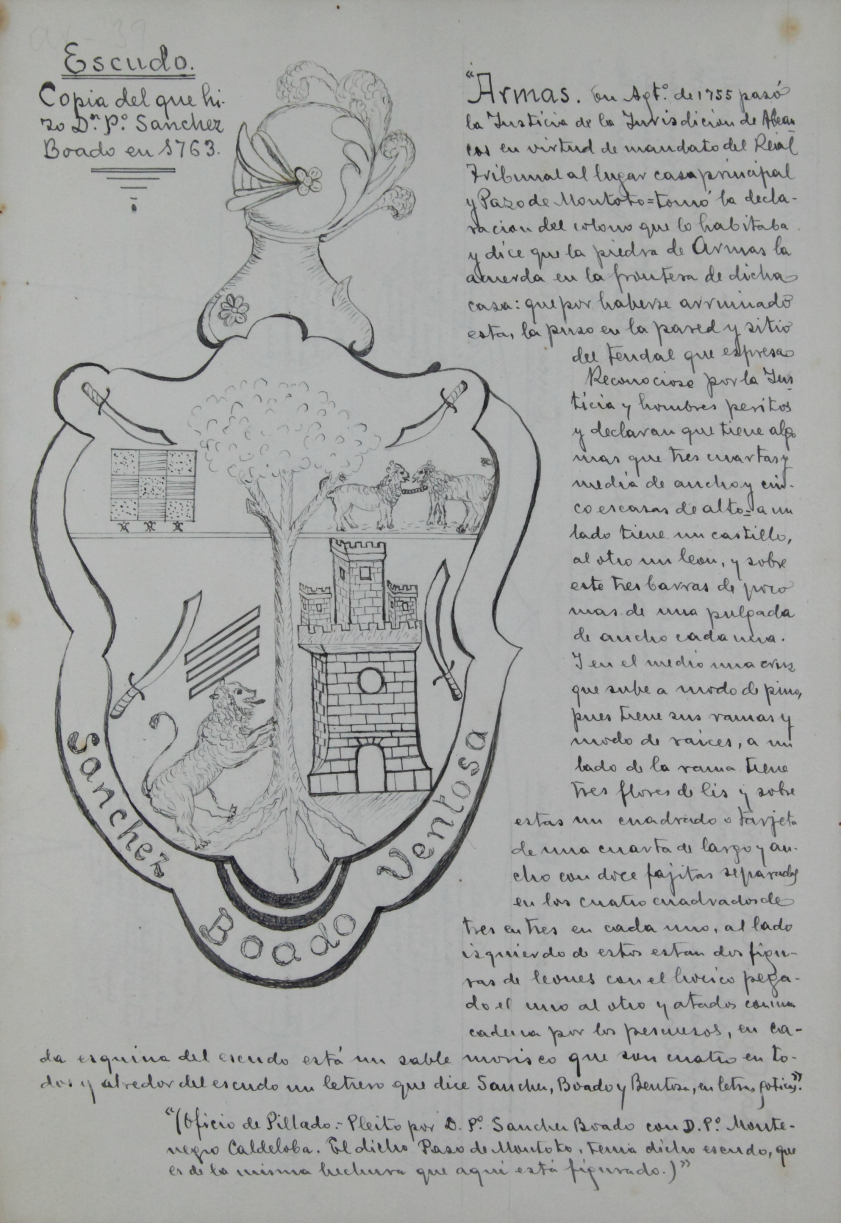 Escudo.
Copia del que hi-
zo Dn. Po. Sanchez
Boado en 1763.
"Armas. En Agto. de 1755 pasó
la Justicia de la Jurisdicion de
en virtud de mandato del Real
Tribunal al lugar casa principal
y Pazo de Montoto=tomó la decla-
racion del colono que lo habitaba
y dice que la piedra de Armas la
acuerda en la frontesa de dicha
casa: que por haberse arruinado
esta, la puso en la pared y sitio
del tendal que espresa
Reconociose por la Jus-
ticia y hombres peritos
y declaran que tiene algo
mas que tres cuartas y
media de ancho y cin-
co escasas de alto=a un
lado tiene un castillo,
al otro un leon, y sobre
este tres barras de poco
mas de una pulgada
de ancho cada una.
I en el medio una cruz
que sube a modo de pino,
pues tiene sus ramas y
modo de raices, a un
lado de la rama tiene
tres flores de lis y sobre
estas un cuadrado o tarjeta
de una cuarta de largo y an-
cho con doce fajitas separadas
en los cuatro cuadrados de
tres en tres en cada uno, al lado
izquierdo de estos estan dos figu-
ras de leones con el hocico pega-
do el uno al otro y atados con una
cadena por los pescuesos, en ca-
da esquina del escudo está un sable morisco que son cuatro en to-
dos y alredor del escudo un letrero que dice Sanchez, Boado y Bentosa, en letras goticas".
"(Oficio de Pillado.- Pleito por D. Po. Sanchez Boado con D. Po. Monte-
negro Caldeloba. El dicho Paso de Montoto, tenia dicho escudo, que
es de la misma hechura que aqui está figurado.)"
Sanchez
Boado
Ventosa